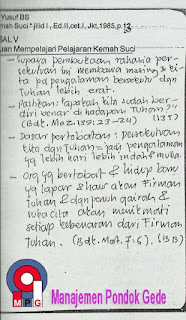 Yusuf BS
mah Suci" jilid I, Ed.II,cet.I, Jkt,1985,p.13
BAL V
uan Mempelajari Pelajaran Kemah Suci
- Supaya pembukaan rahasia per-
sekutuan ini membawa masing2 ki-
ta pd pengalaman bersekutu dgn
Tuhan lebih erat.
- Pastikan: "apakah kita sudah ber-
diri benar di hadapan Tuhan?"
(Bdt. Mzm. 139:23-24) (13T)
- Dasar pertobatan: persekutuan
kita dgn Tuhan = jadi pengalaman
yg lebih hari lebih indah & muka.
- Org yg bertobat & hidup baru
yg lapar & haus akan Firman
Tuhan & dgn penuh gairah &
suka cita akan menikmati
setiap kebenaran dari Firman
Tuhan. (Bdt. Mat. 7:6). (13B)
MPG
Manajemen Pondok Gede